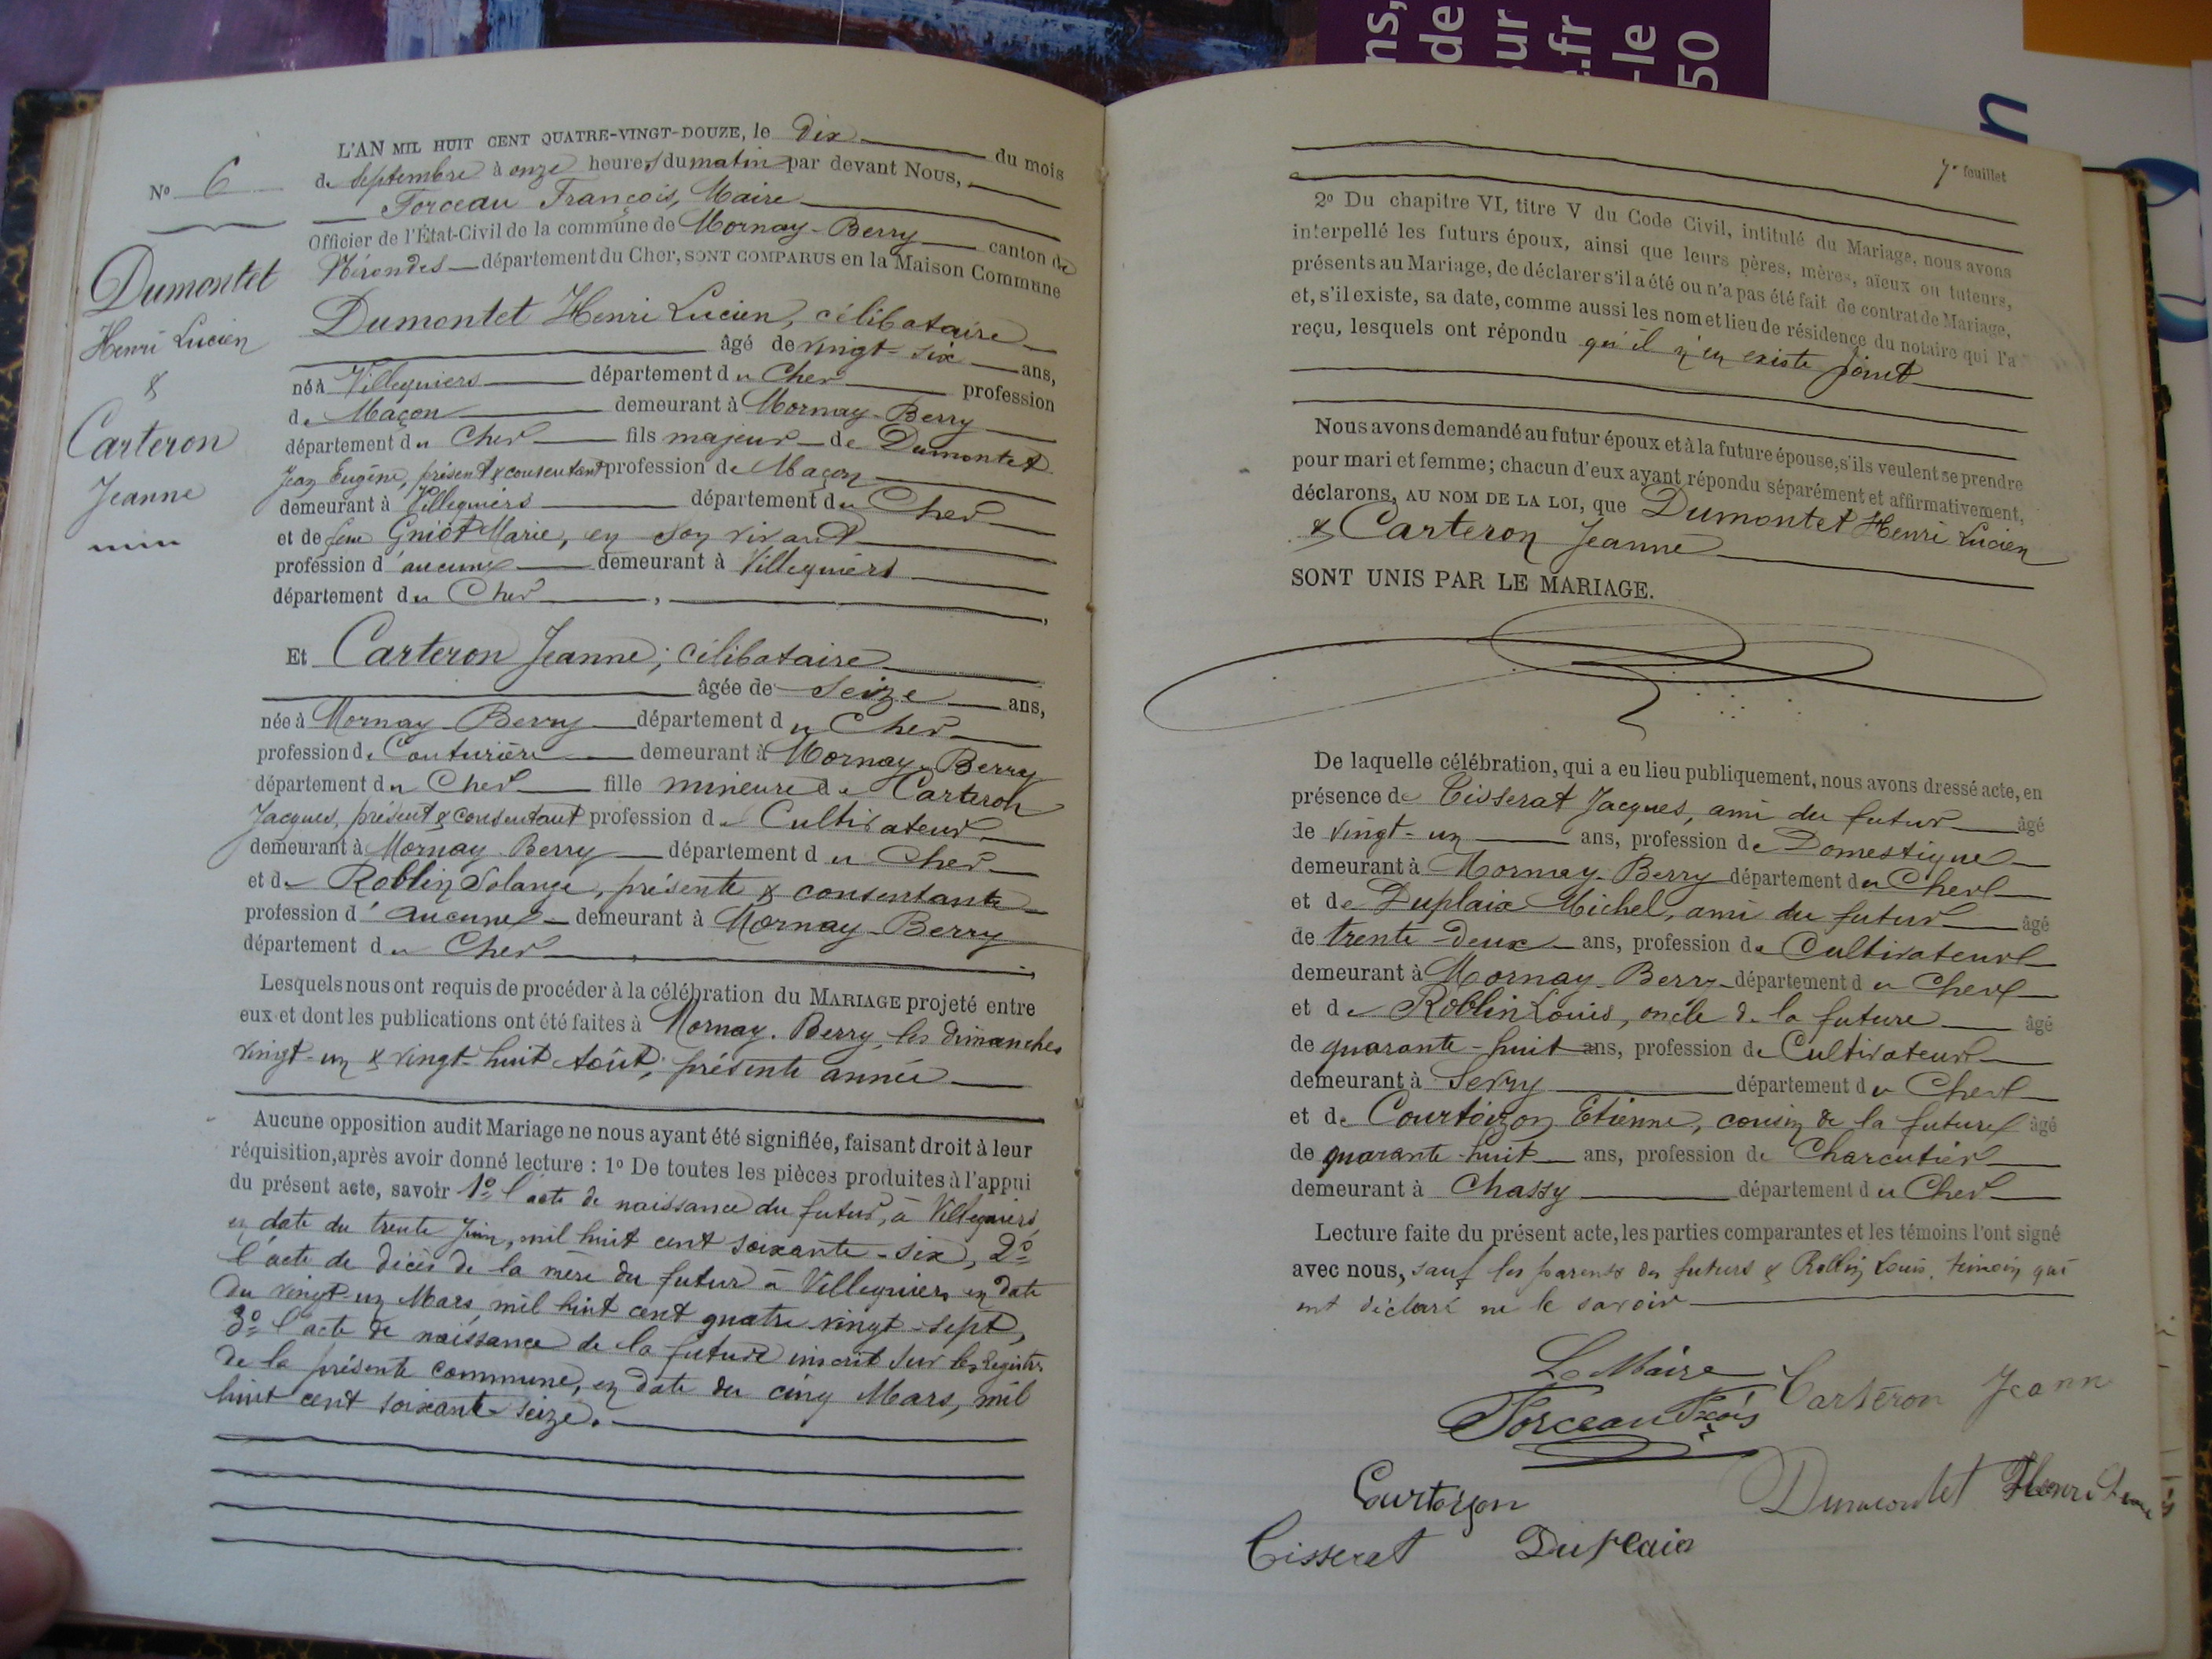 ns,
de
sur
.fr
-le
50
n
N° 6
Dumontet
Henri Lucien
&
Carteron
Jeanne
L'AN MIL HUIT CENT QUATRE-VINGT-DOUZE, le Dix du mois
de Septembre à onze heures du matin par devant Nous,
Forceau François, Maire
Officier de l'État-Civil de la commune de Mornay-Berry canton de
Nérondes département du Cher, SONT COMPARUS en la Maison Commune
Dumontet Henri Lucien, célibataire
âgé de vingt-six ans,
né à Villequiers département du Cher profession
de Maçon demeurant à Mornay-Berry
département du Cher fils majeur de Dumontet
Jean Eugène, présent & consentant profession de Maçon
demeurant à Villequiers département du Cher
et de feue Gniot Marie, en son vivant
profession d'aucune demeurant à Villequiers
département du Cher,
Et Carteron Jeanne; célibataire
âgée de Seize ans,
née à Mornay-Berry département du Cher
profession de Couturière demeurant à Mornay-Berry
département du Cher fille mineure de Carteron
Jacques, présent & consentant profession de Cultivateur
demeurant à Mornay-Berry département du Cher
et de Roblin Solange, présente & consentante
profession d'aucune demeurant à Mornay-Berry
département du Cher
Lesquels nous ont requis de procéder à la célébration du MARIAGE projeté entre
eux et dont les publications ont été faites à Mornay-Berry, les dimanches
vingt-un & vingt-huit Août, présente année
Aucune opposition audit Mariage ne nous ayant été signifiée, faisant droit à leur
réquisition, après avoir donné lecture : 1° De toutes les pièces produites à l'appui
du présent acte, savoir 1° l'acte de naissance du futur, à Villequiers,
en date du trente Juin, mil huit cent soixante-six, 2°
l'acte de décès de la mère du futur à Villequiers en date
du vingt-un Mars mil huit cent quatre vingt-sept,
3° l'acte de naissance de la future inscrit sur les Registres
de la présente commune, en date du cinq Mars, mil
huit cent soixante-seize.
7e feuillet
2° Du chapitre VI, titre V du Code Civil, intitulé du Mariage, nous avons
interpellé les futurs époux, ainsi que leurs pères, mères, aïeux ou tuteurs,
présents au Mariage, de déclarer s'il a été ou n'a pas été fait de contrat de Mariage,
et, s'il existe, sa date, comme aussi les nom et lieu de résidence du notaire qui l'a
reçu, lesquels ont répondu qu'il n'en existe point
Nous avons demandé au futur époux et à la future épouse, s'ils veulent se prendre
pour mari et femme; chacun d'eux ayant répondu séparément et affirmativement,
déclarons, AU NOM DE LA LOI, que Dumontet Henri Lucien
& Carteron Jeanne
SONT UNIS PAR LE MARIAGE.
De laquelle célébration, qui a eu lieu publiquement, nous avons dressé acte, en
présence de Tisserat Jacques, ami du futur âgé
de vingt-un ans, profession de Domestique
demeurant à Mornay-Berry département du Cher
et de Duplaix Michel, ami du futur âgé
de trente-deux ans, profession de Cultivateur
demeurant à Mornay-Berry département du Cher
et de Roblin Louis, oncle de la future âgé
de quarante-huit ans, profession de Cultivateur
demeurant à Sevry département du Cher
et de Courtoizon Etienne, cousin de la future âgé
de quarante-huit ans, profession de Charcutier
demeurant à Chassy département du Cher
Lecture faite du présent acte, les parties comparantes et les témoins l'ont signé
avec nous, sauf les parents des futurs & Roblin Louis, témoin qui
ont déclaré ne le savoir
Le Maire
Forceau Fçois
Carteron Jeann
Courtoizon
Dumontet Henri
Tisserat
Duplaix